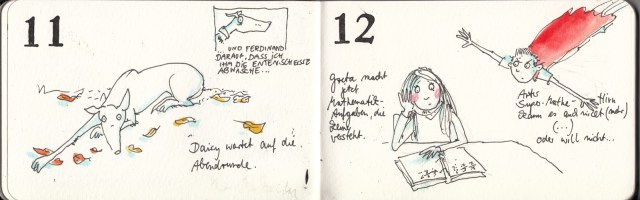 11
... UND FERDINAND
DARAUF, DASS ICH
IHM DIE ENTENSCHEISSE
ABWASCHE...
Daisy wartet auf die
Abendrunde.
12
Greta macht
jetzt
Mathematik-
Aufgaben, die
keiner
versteht.
Super-Mathe-Hirn
kann es auch nicht (mehr)
(...)
oder will nicht...